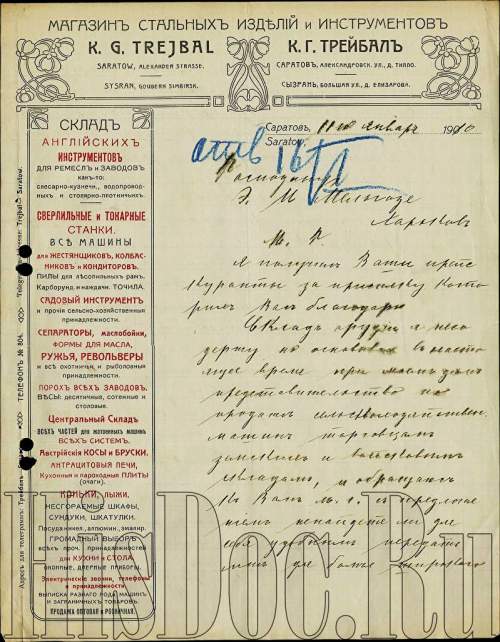 МАГАЗИНЪ СТАЛЬНЫХЪ ИЗДѢЛІЙ И ИНСТРУМЕНТОВЪ
K. G. TREJBAL
SARATOW, ALEXANDER STRASSE.
SYSRAN, GOUBERN SIMBIRSK.
К. Г. ТРЕЙБАЛЪ
САРАТОВЪ, АЛЕКСАНДРОВСК. УЛ., Д. ТИЛЛО.
СЫЗРАНЬ, БОЛЬШАЯ УЛ., Д. ЕЛИЗАРОВА.
Саратовъ, 11го Январь 1910
Saratow,
отв 16/I
СКЛАДЪ
АНГЛІЙСКИХЪ
ИНСТРУМЕНТОВЪ
ДЛЯ РЕМЕСЛЪ И ЗАВОДОВЪ
какъ-то:
слесарно-кузнечн., водопроводныхъ и столярно-плотничьихъ.
СВЕРЛИЛЬНЫЕ и ТОКАРНЫЕ
СТАНКИ.
ВСѢ МАШИНЫ
для ЖЕСТЯНЩИКОВЪ, КОЛБАСНИКОВЪ и КОНДИТОРОВЪ.
ПИЛЫ для лѣсопильныхъ рамъ.
Карборунд. и наждачн. ТОЧИЛА.
САДОВЫЙ ИНСТРУМЕНТ
и прочія сельско-хозяйственныя принадлежности.
СЕПАРАТОРЫ, маслобойки,
ФОРМЫ ДЛЯ МАСЛА,
РУЖЬЯ, РЕВОЛЬВЕРЫ
и всѣ охотничьи и рыболовныя принадлежности.
ПОРОХЪ ВСѢХЪ ЗАВОДОВЪ.
ВѢСЫ: десятичные, сотенные и столовые.
Центральный Складъ
ВСѢХЪ ЧАСТЕЙ для жатвенныхъ машинъ
ВСѢХЪ СИСТЕМЪ.
Австрійскія КОСЫ и БРУСКИ.
АНТРАЦИТОВЫЯ ПЕЧИ,
Кухонныя и пароходныя ПЛИТЫ
(очаги).
КОНЬКИ, ЛЫЖИ.
НЕСГОРАЕМЫЕ ШКАФЫ,
СУНДУКИ, ШКАТУЛКИ.
Посуда никел., алюмин., эмалир.
ГРОМАДНЫЙ ВЫБОРЪ
всѣхъ проч. принадлежностей
для КУХНИ и СТОЛА.
оконные, дверные приборы.
Электрическіе звонки, телефоны и принадлежности.
ВЫПИСКА РАЗНАГО РОДА МАШИНЪ И ЗАГРАНИЧНЫХЪ ТОВАРОВЪ.
ПРОДАЖА ОПТОВАЯ и РОЗНИЧНАЯ.
Адресъ для телеграммъ: Трейбалъ
ТЕЛЕФОНЪ № 804.
Trejbal Saratow.
Господину
Э. М.
Харьковъ
М. Г.
Я получилъ Ваши прейс
куранты за присылку кото
рыхъ Васъ благодарю
Склада орудій я не
держу
щее время при моемъ дѣлѣ
представительство по
продажѣ сельскохозяйствен.
машинъ торговцамъ
земскимъ и войсковымъ
складамъ, и обращаюсь
къ Вамъ м. г. съ предложе
ніемъ ненайдете ли для
себя удобнымъ передать
мнѣ для болѣе широкаго
HisDoc.Ru